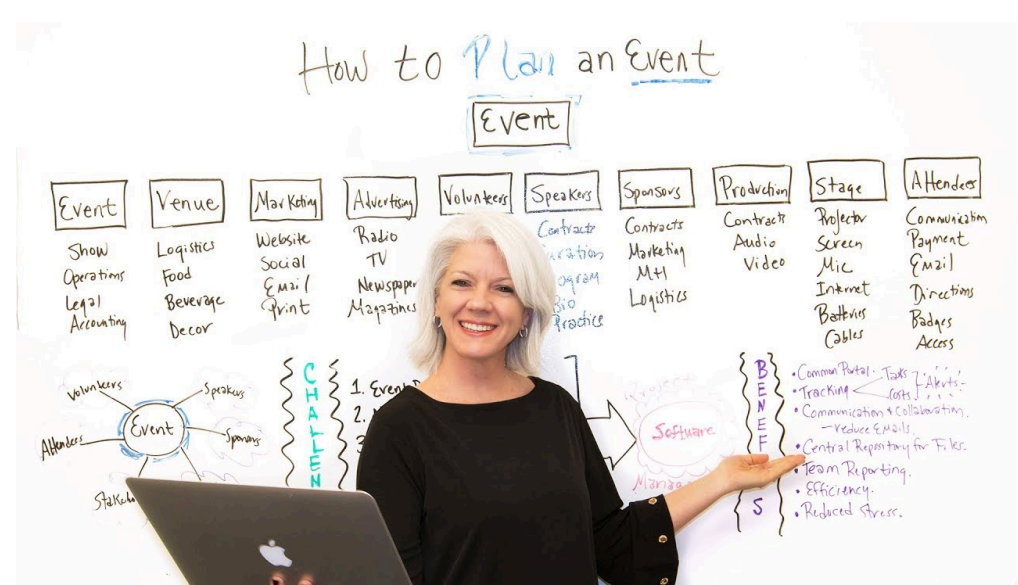 How to Plan an Event
Event
Event
Show
Operations
Legal
Accounting
Venue
Logistics
Food
Beverage
Decor
Marketing
Website
Social
Email
Print
Advertising
Radio
TV
Newspaper
Magazines
Volunteers
Speakers
Contracts
Bio
Practice
Sponsors
Contracts
Marketing
Logistics
Production
Contracts
Audio
Video
Stage
Projector
Screen
Mic
Internet
Batteries
Cables
Attendees
Communication
Payment
Email
Directions
Badges
Access
Volunteers
Speakers
Attendees
Event
Sponsors
CHALLEN
1. Event
Project
Software
BENEF
S
• Common Portal.
• Tracking
Tasks
Costs
Alerts
• Communication & Collaboration.
– reduce Emails.
• Central Repository for Files.
• Team Reporting.
• Efficiency.
• Reduced Stress.